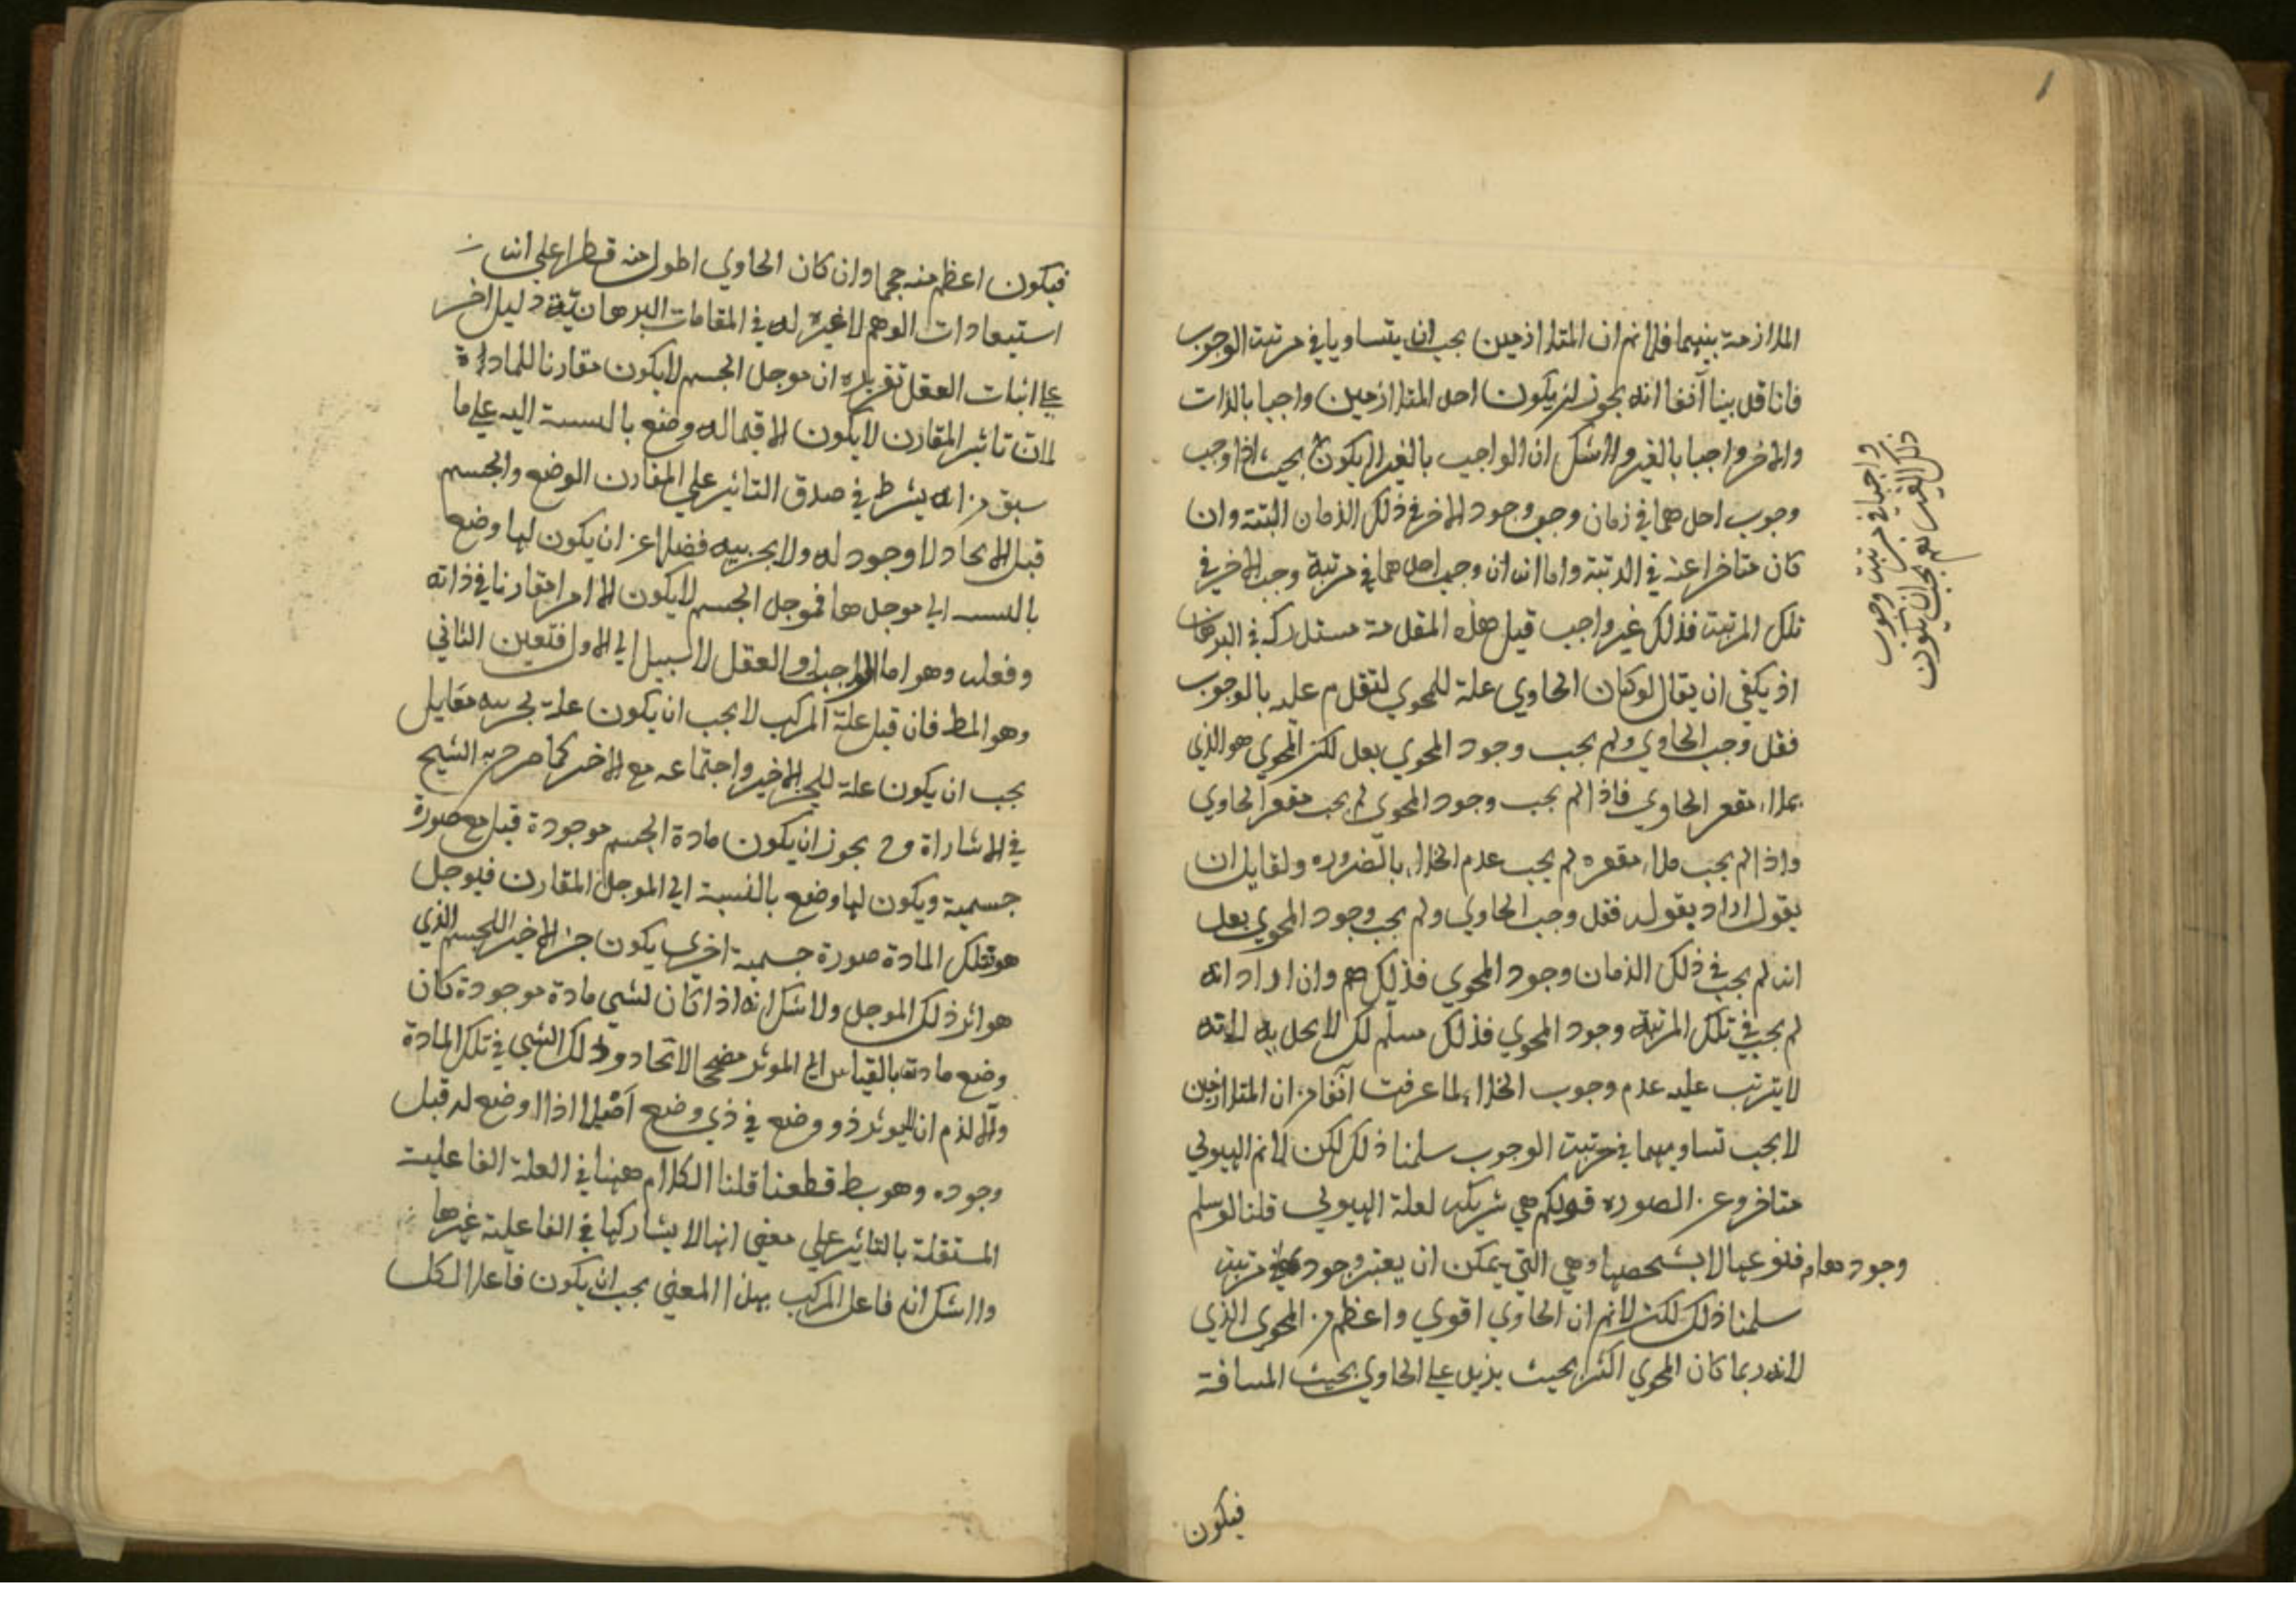 الملازمة بينهما فلانم ان المتلازمين يجب ان يتساويا في مرتبة الوجوب
فانا قد بينا آنفا انه يجوز ان يكون احد المتلازمين واجبا بالذات
والاخر واجبا بالغير ولاشك ان الواجب بالغير لا يكون
وجوب احدهما في زمان وجب وجود الاخر في ذلك الزمان البتة وان
كان متاخرا عنه في الرتبة واما انه ان وجب احدهما في مرتبة وجب الاخر في
تلك المرتبة فذلك غير واجب قيل هذه المقدمة مستدركة في البرهان
اذ يكفي ان يقال لو كان الحاوي علة للمحوي لتقدم عليه بالوجوب
فقد وجب الحاوي ولم يجب وجود المحوي بعد لكن المحوي هو الذي
يملاء مقعر الحاوي فاذا لم يجب وجود المحوي لم يجب مقعر الحاوي
واذا لم يجب ملاء مقعره لم يجب عدم الخلاء بالضروره ولقايل ان
يقول اراد بقوله فقد وجب الحاوي ولم يجب وجود المحوي بعد
انه لم يجب في ذلك الزمان وجود المحوي فذلك مم وان اراد انه
لم يجب في تلك المرتبة وجود المحوي فذلك مسلم لكن لا يجديه لانه
لا يترتب عليه عدم وجوب الخلاء لما عرفت آنفا من ان المتلازمين
لا يجب تساويهما في مرتبة الوجوب سلمنا ذلك لكن لانم الهيولي
متاخرة عن الصوره قولكم هي شريكه لعلة الهيولي قلنا لو سلم
وجودها فنوعها لا بشخصها وهي التي يمكن ان يعتبر وجود في مرتبة
سلمنا ذلك لكن لانم ان الحاوي اقوي واعظم من المحوي الذي
لانه ربما كان المحوي اكثر بحيث يزيد علي الحاوي بحيث المسافة
فيكون
واجبا في مرتبة وجوب
ذلك الغير نعم يجب ان يكون
فيكون اعظم منه حجما وان كان الحاوي اطول منه قطرا علي ان
استبعادات الوهم لا عبرة له في المقامات البرهانية دليل اخر
علي اثبات العقل تقريره ان موجد الجسم لا يكون مقارنا للمادة
لان تاثير المقارن لا يكون الا فيما له وضع بالنسبة اليه علي ما
سبق من انه يشترط في صدق التاثير علي المقارن الوضع والجسم
قبل الايجاد لا وجود له ولا لجزئيه فضلا عن ان يكون لها وضع
بالنسبة الي موجدها فموجد الجسم لا يكون الا امرا مفارقا في ذاته
وفعله وهو اما الواجب او العقل لا سبيل الي الاول فتعين الثاني
وهو المط فان قيل علة المركب لا يجب ان يكون علة لجزئيه مقايل
يجب ان يكون علة للجزء الاخير واجتماعه مع الاخر كما صرح به الشيخ
في الاشارات وح يجوز ان يكون مادة الجسم موجودة قبل مع صورة
جسمية ويكون لها وضع بالنسبة الي الموجد المقارن فيوجد
هو تلك المادة صورة جسمية اخري يكون جزء الاخير للجسم الذي
هو اثر ذلك الموجد ولا شك انه اذا كان لشي مادة موجودة كان
وضع مادته بالقياس الي الموثر مصححا لايجاد ذلك الشي في تلك المادة
والا لزم ان لا يوثر ذو وضع في ذي وضع اصلا اذ لا وضع له قبل
وجوده وهو بط قطعنا قلنا الكلام ههنا في العلة الفاعلية
المستقلة بالتاثير علي معني انها لا يشاركها في الفاعلية غيرها
ولا شك انه فاعل المركب بهذا المعني يجب ان يكون فاعلا لكل